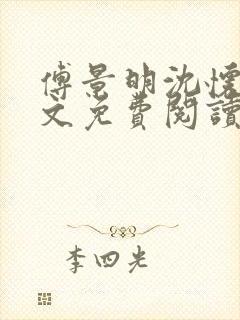 傅景明沈懷
文免費閱讀
李四光